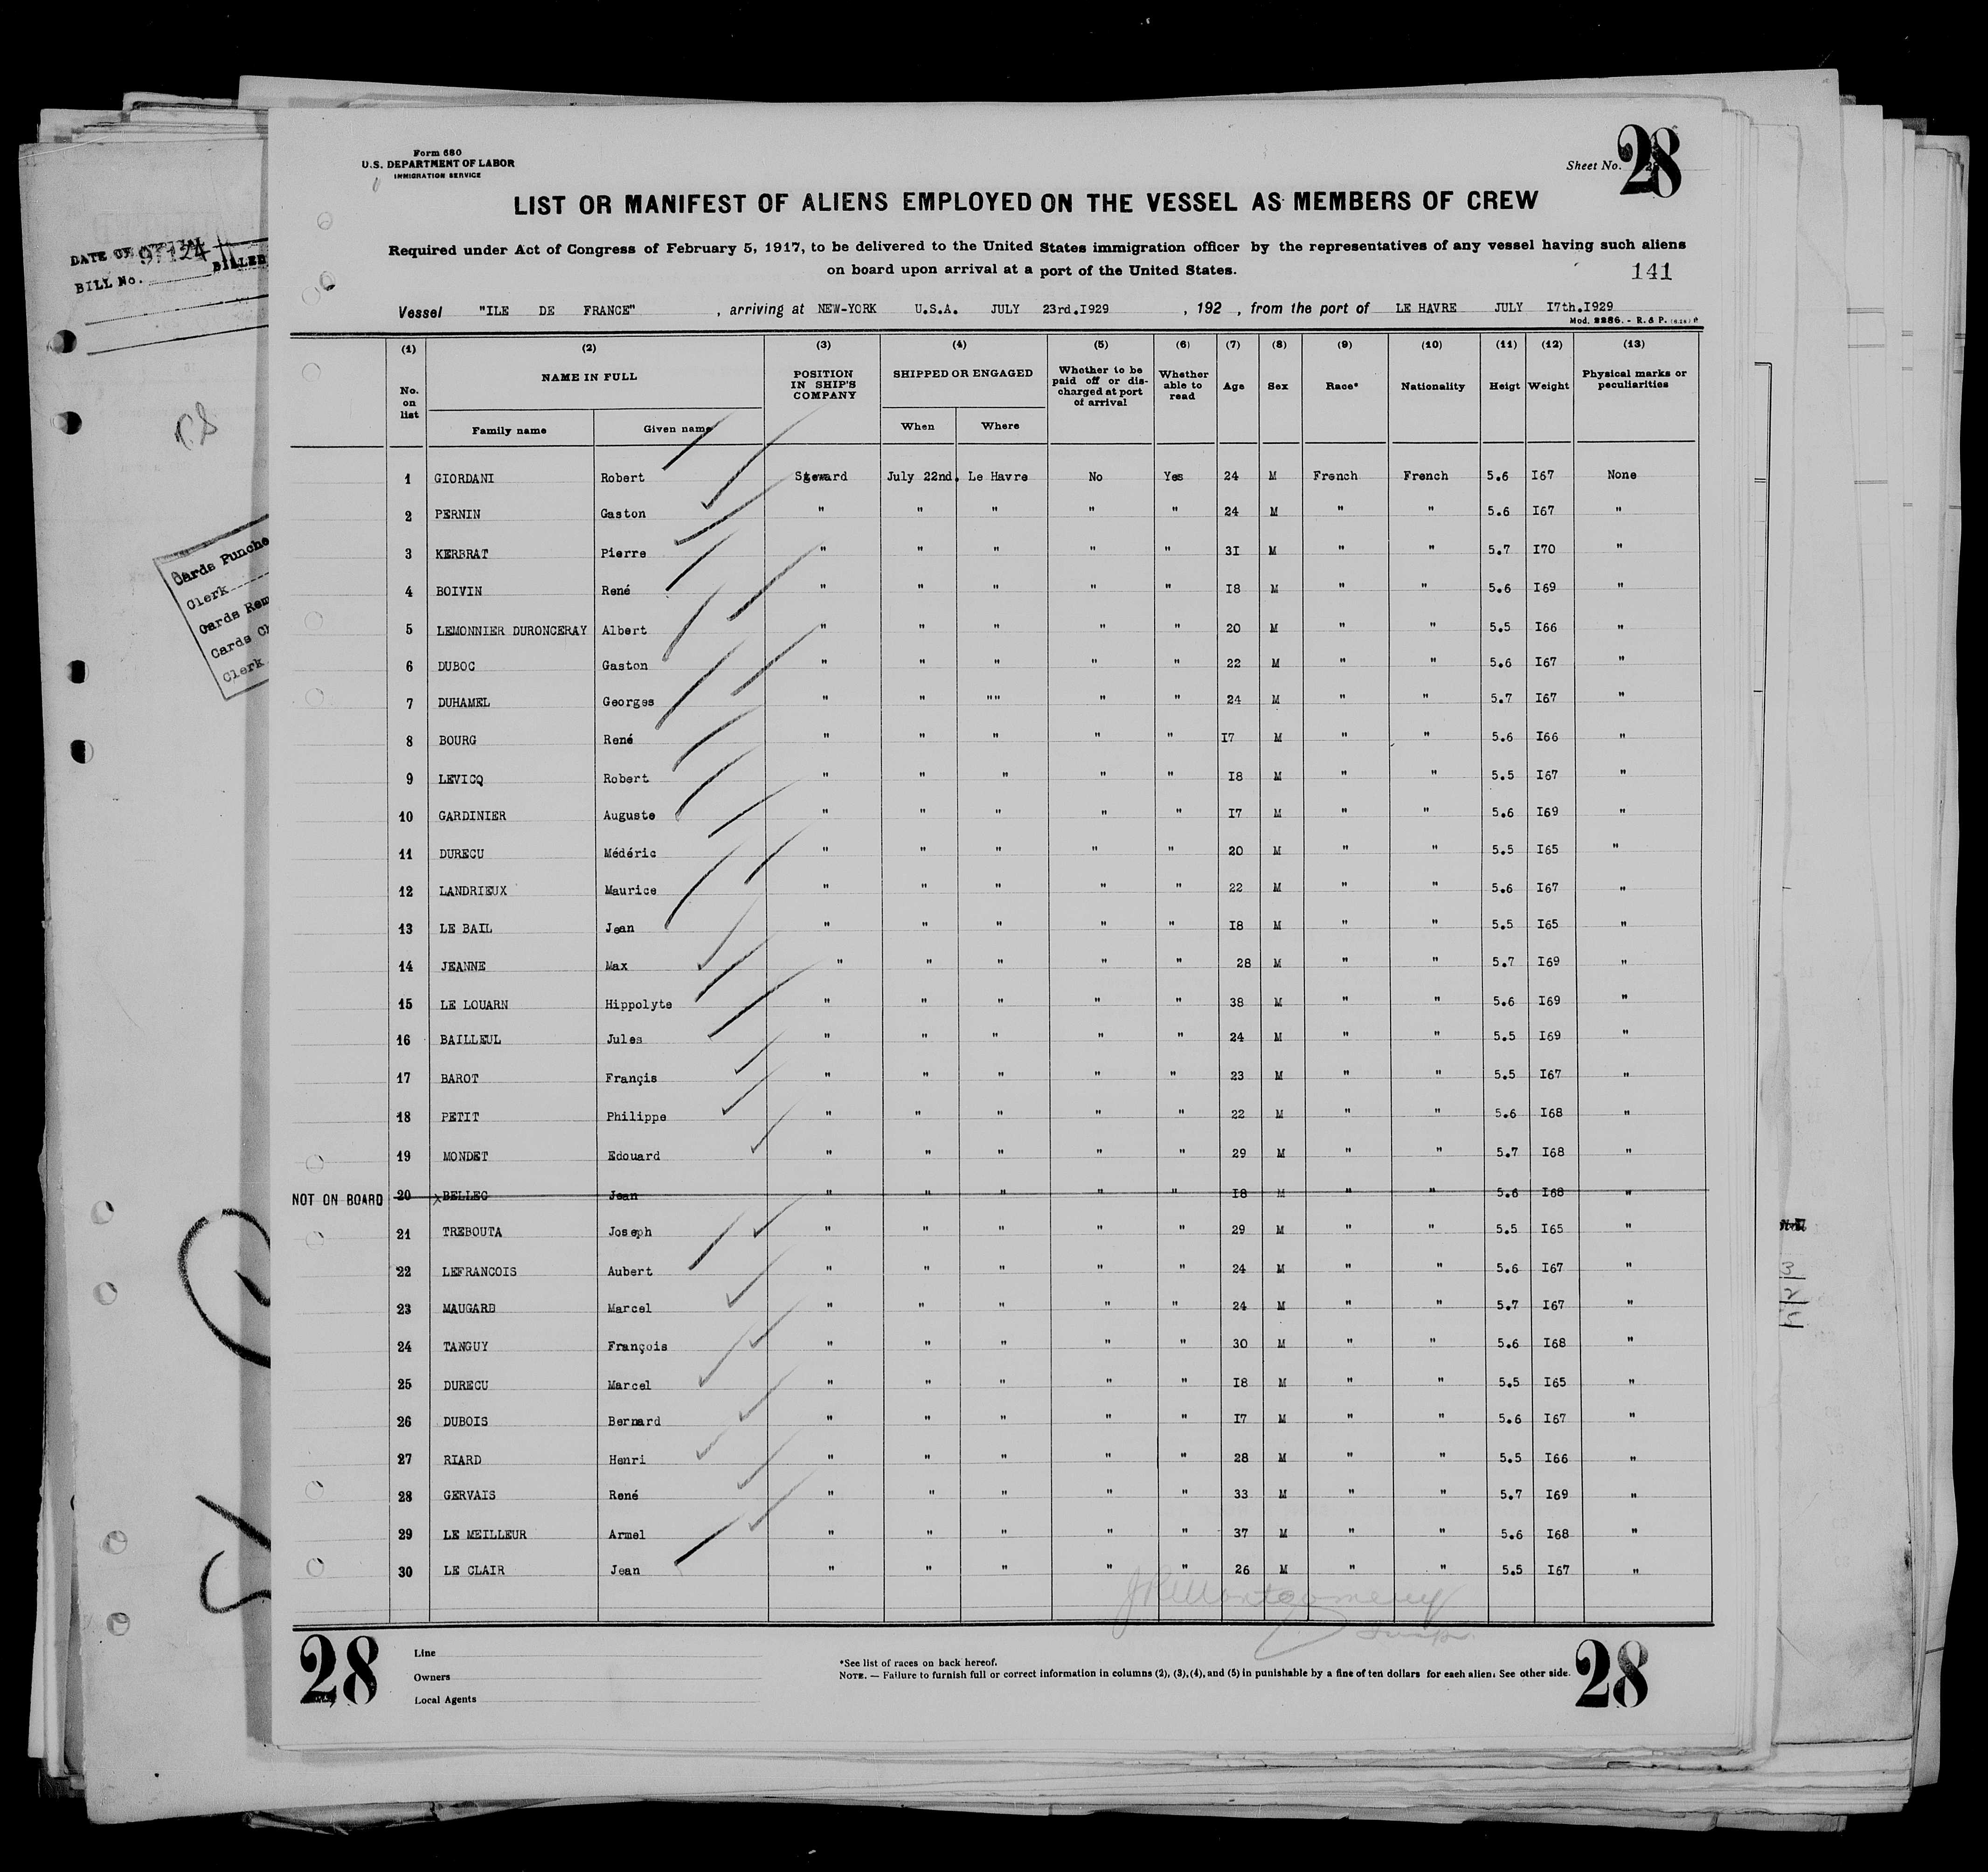 Form 680
U.S. DEPARTMENT OF LABOR
IMMIGRATION SERVICE
Sheet No. 28
LIST OR MANIFEST OF ALIENS EMPLOYED ON THE VESSEL AS MEMBERS OF CREW
Required under Act of Congress of February 5, 1917, to be delivered to the United States immigration officer by the representatives of any vessel having such aliens
on board upon arrival at a port of the United States.
141
Vessel "ILE DE FRANCE" , arriving at NEW-YORK U.S.A. JULY 23rd.I929 , 192 , from the port of LE HAVRE JULY I7th.I929
Mod. 2286. - R. & P.
(1) (2) (3) (4) (5) (6) (7) (8) (9) (10) (11) (12) (13)
No. on list NAME IN FULL POSITION IN SHIP'S COMPANY SHIPPED OR ENGAGED Whether to be paid off or discharged at port of arrival Whether able to read Age Sex Race* Nationality Heigt Weight Physical marks or peculiarities
Family name Given name When Where
1 GIORDANI Robert Steward July 22nd. Le Havre No Yes 24 M French French 5.6 I67 None
2 PERNIN Gaston " " " " " 24 M " " 5.6 I67 "
3 KERBRAT Pierre " " " " " 3I M " " 5.7 I70 "
4 BOIVIN René " " " " " I8 M " " 5.6 I69 "
5 LEMONNIER DURONCERAY Albert " " " " " 20 M " " 5.5 I66 "
6 DUBOC Gaston " " " " " 22 M " " 5.6 I67 "
7 DUHAMEL Georges " " "" " " 24 M " " 5.7 I67 "
8 BOURG René " " " " " I7 M " " 5.6 I66 "
9 LEVICQ Robert " " " " " I8 M " " 5.5 I67 "
10 GARDINIER Auguste " " " " " I7 M " " 5.6 I69 "
11 DURECU Médéric " " " " " 20 M " " 5.5 I65 "
12 LANDRIEUX Maurice " " " " " 22 M " " 5.6 I67 "
13 LE BAIL Jean " " " " " I8 M " " 5.5 I65 "
14 JEANNE Max " " " " " 28 M " " 5.7 I69 "
15 LE LOUARN Hippolyte " " " " " 38 M " " 5.6 I69 "
16 BAILLEUL Jules " " " " " 24 M " " 5.5 I69 "
17 BAROT Françis " " " " " 23 M " " 5.5 I67 "
18 PETIT Philippe " " " " " 22 M " " 5.6 I68 "
19 MONDET Edouard " " " " " 29 M " " 5.7 I68 "
NOT ON BOARD 20 x BELLEC Jean " " " " " I8 M " " 5.6 I68 "
21 TREBOUTA Joseph " " " " " 29 M " " 5.5 I65 "
22 LEFRANCOIS Aubert " " " " " 24 M " " 5.6 I67 "
23 MAUGARD Marcel " " " " " 24 M " " 5.7 I67 "
24 TANGUY François " " " " " 30 M " " 5.6 I68 "
25 DURECU Marcel " " " " " I8 M " " 5.5 I65 "
26 DUBOIS Bernard " " " " " I7 M " " 5.6 I67 "
27 RIARD Henri " " " " " 28 M " " 5.5 I66 "
28 GERVAIS René " " " " " 33 M " " 5.7 I69 "
29 LE MEILLEUR Armel " " " " " 37 M " " 5.6 I68 "
30 LE CLAIR Jean " " " " " 26 M " " 5.5 I67 "
Montgomery
28 28
Line
Owners
Local Agents
*See list of races on back hereof.
NOTE. — Failure to furnish full or correct information in columns (2), (3), (4), and (5) in punishable by a fine of ten dollars for each alien. See other side.
DATE OF
BILL No. 97124 BILLED
Cards Punche
Clerk
Cards Rem
Cards Ch
Clerk